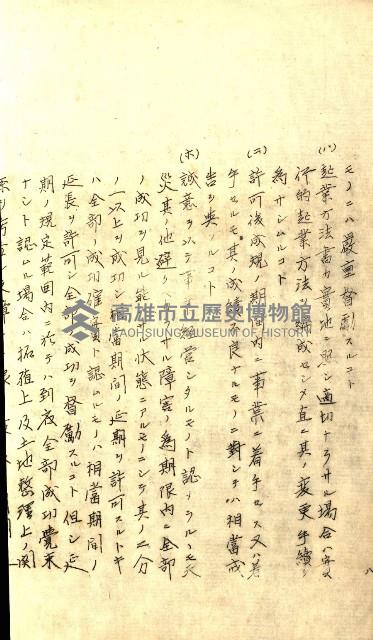 モノニハ嚴重督勵スルコト
(ハ)起業方法書カ實地ニ照シ適切ナラサル場合ハ
行的起業方法ヲ編成セシメ直ニ其ノ變更手續ヲ
為サシムルコト
(ニ)許可後成規ノ期間内ニ事業ニ着手セス又ハ着
手セルモ其ノ成績不良ナルモノニ對シテハ相當戒
告ヲ與フルコト
(ホ)誠意ヲ以テ事業ヲ經營シタルモノト認メラルヽモ天
災其ノ他避クヘカラサル障害ノ為期限内ニ全部
ノ成功ヲ見ル能ハサル狀態ニアルモノニシテ其ノ二分
ノ一以上ヲ成功シ相當期間ノ延期ヲ許可スルトキ
ハ全部ノ成功確實ト認ムルモノハ相當期間ノ
延長ヲ許可シ全部成功ヲ督勵スルコト但シ延
期ノ規定範圍内ニ於テハ到底全部成功覺束
ナシト認ムル場合ハ拓殖上及土地整理上ノ關
高雄市立歷史博物館
KAOHSIUNG MUSEUM OF HISTORY